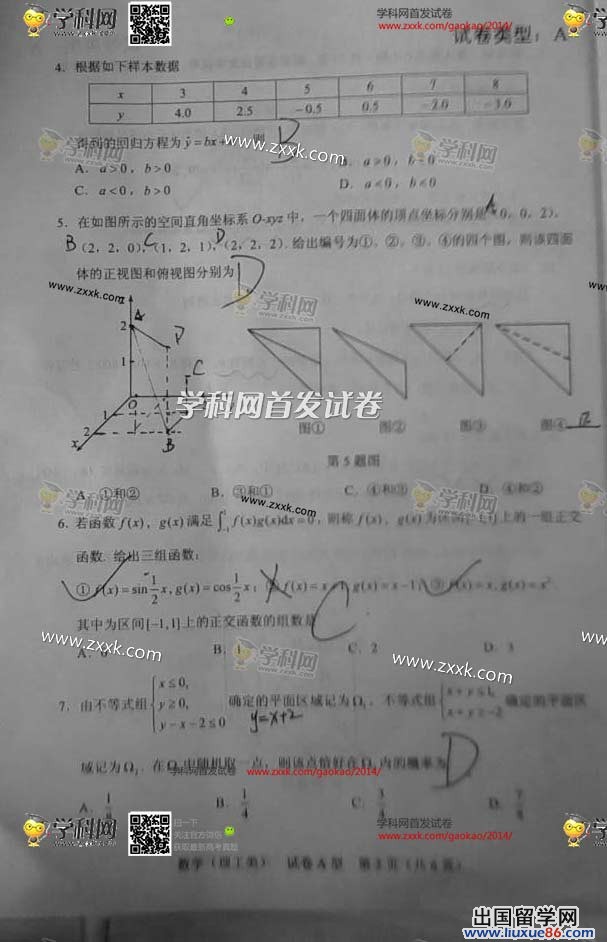 学科网首发试卷
www.zxxk.com/gaokao/2014/
学科网
扫一扫
关注官方微信
学科网首发试卷
www.zxxk.com/gaokao/2014/
学科网
试卷类型：A
4. 根据如下样本数据
x 3 4 5 6 7 8
y 4.0 2.5 −0.5 0.5 −2.0 −3.0
得到的回归方程为ŷ=bx+ 则 B
学科网 www.zxxk.com 学科网
A. a>0，b>0 B. a>0，b<0
C. a<0，b>0 D. a<0，b<0
5. 在如图所示的空间直角坐标系O-xyz中，一个四面体的顶点坐标分别是 A 0，0，2)，
B (2，2，0)，C (1，2，1)，D (2，2，2). 给出编号为①、②、③、④的四个图，则该四面
体的正视图和俯视图分别为 D
www.zxxk.com 学科网 www.zxxk.com
z
2 A
D
1
C
O
1
2
x
B
学科网首发试卷
图① 图② 图③ 图④ 正
第5题图
A. ①和② B. ③和① C. ④和③ D. ④和②
学科网 www.zxxk.com 学科网
6. 若函数f(x)，g(x)满足∫₋₁¹ f(x)g(x)dx=0，则称f(x)，g(x)为区间[-1,1]上的一组正交
函数. 给出三组函数：
①f(x)=sin½x, g(x)=cos½x； ②f(x)=x g(x)=x−1 ③f(x)=x, g(x)=x²
其中为区间[−1,1]上的正交函数的组数是 C
www.zxxk.com 学科网 www.zxxk.com
A. 0 B. 1 C. 2 D. 3
7. 由不等式组{x≤0, y≥0, y−x−2≤0 确定的平面区域记为Ω₁，不等式组{x+y≤1, x+y≥−2 确定的平面区
y=x+2
域记为Ω₂，在Ω₁中随机取一点，则该点恰好在Ω₂内的概率为 D
学科网首发试卷
www.zxxk.com/gaokao/2014/
A. 1/8 B. 1/4 C. 3/4 D. 7/8
学科网
扫一扫
关注官方微信
获取最新高考真题
学科网首发试卷
www.zxxk.com/gaokao/2014/
学科网
数学（理工类） 试卷A型 第2页（共6页）
出国留学网
www.liuxue86.com